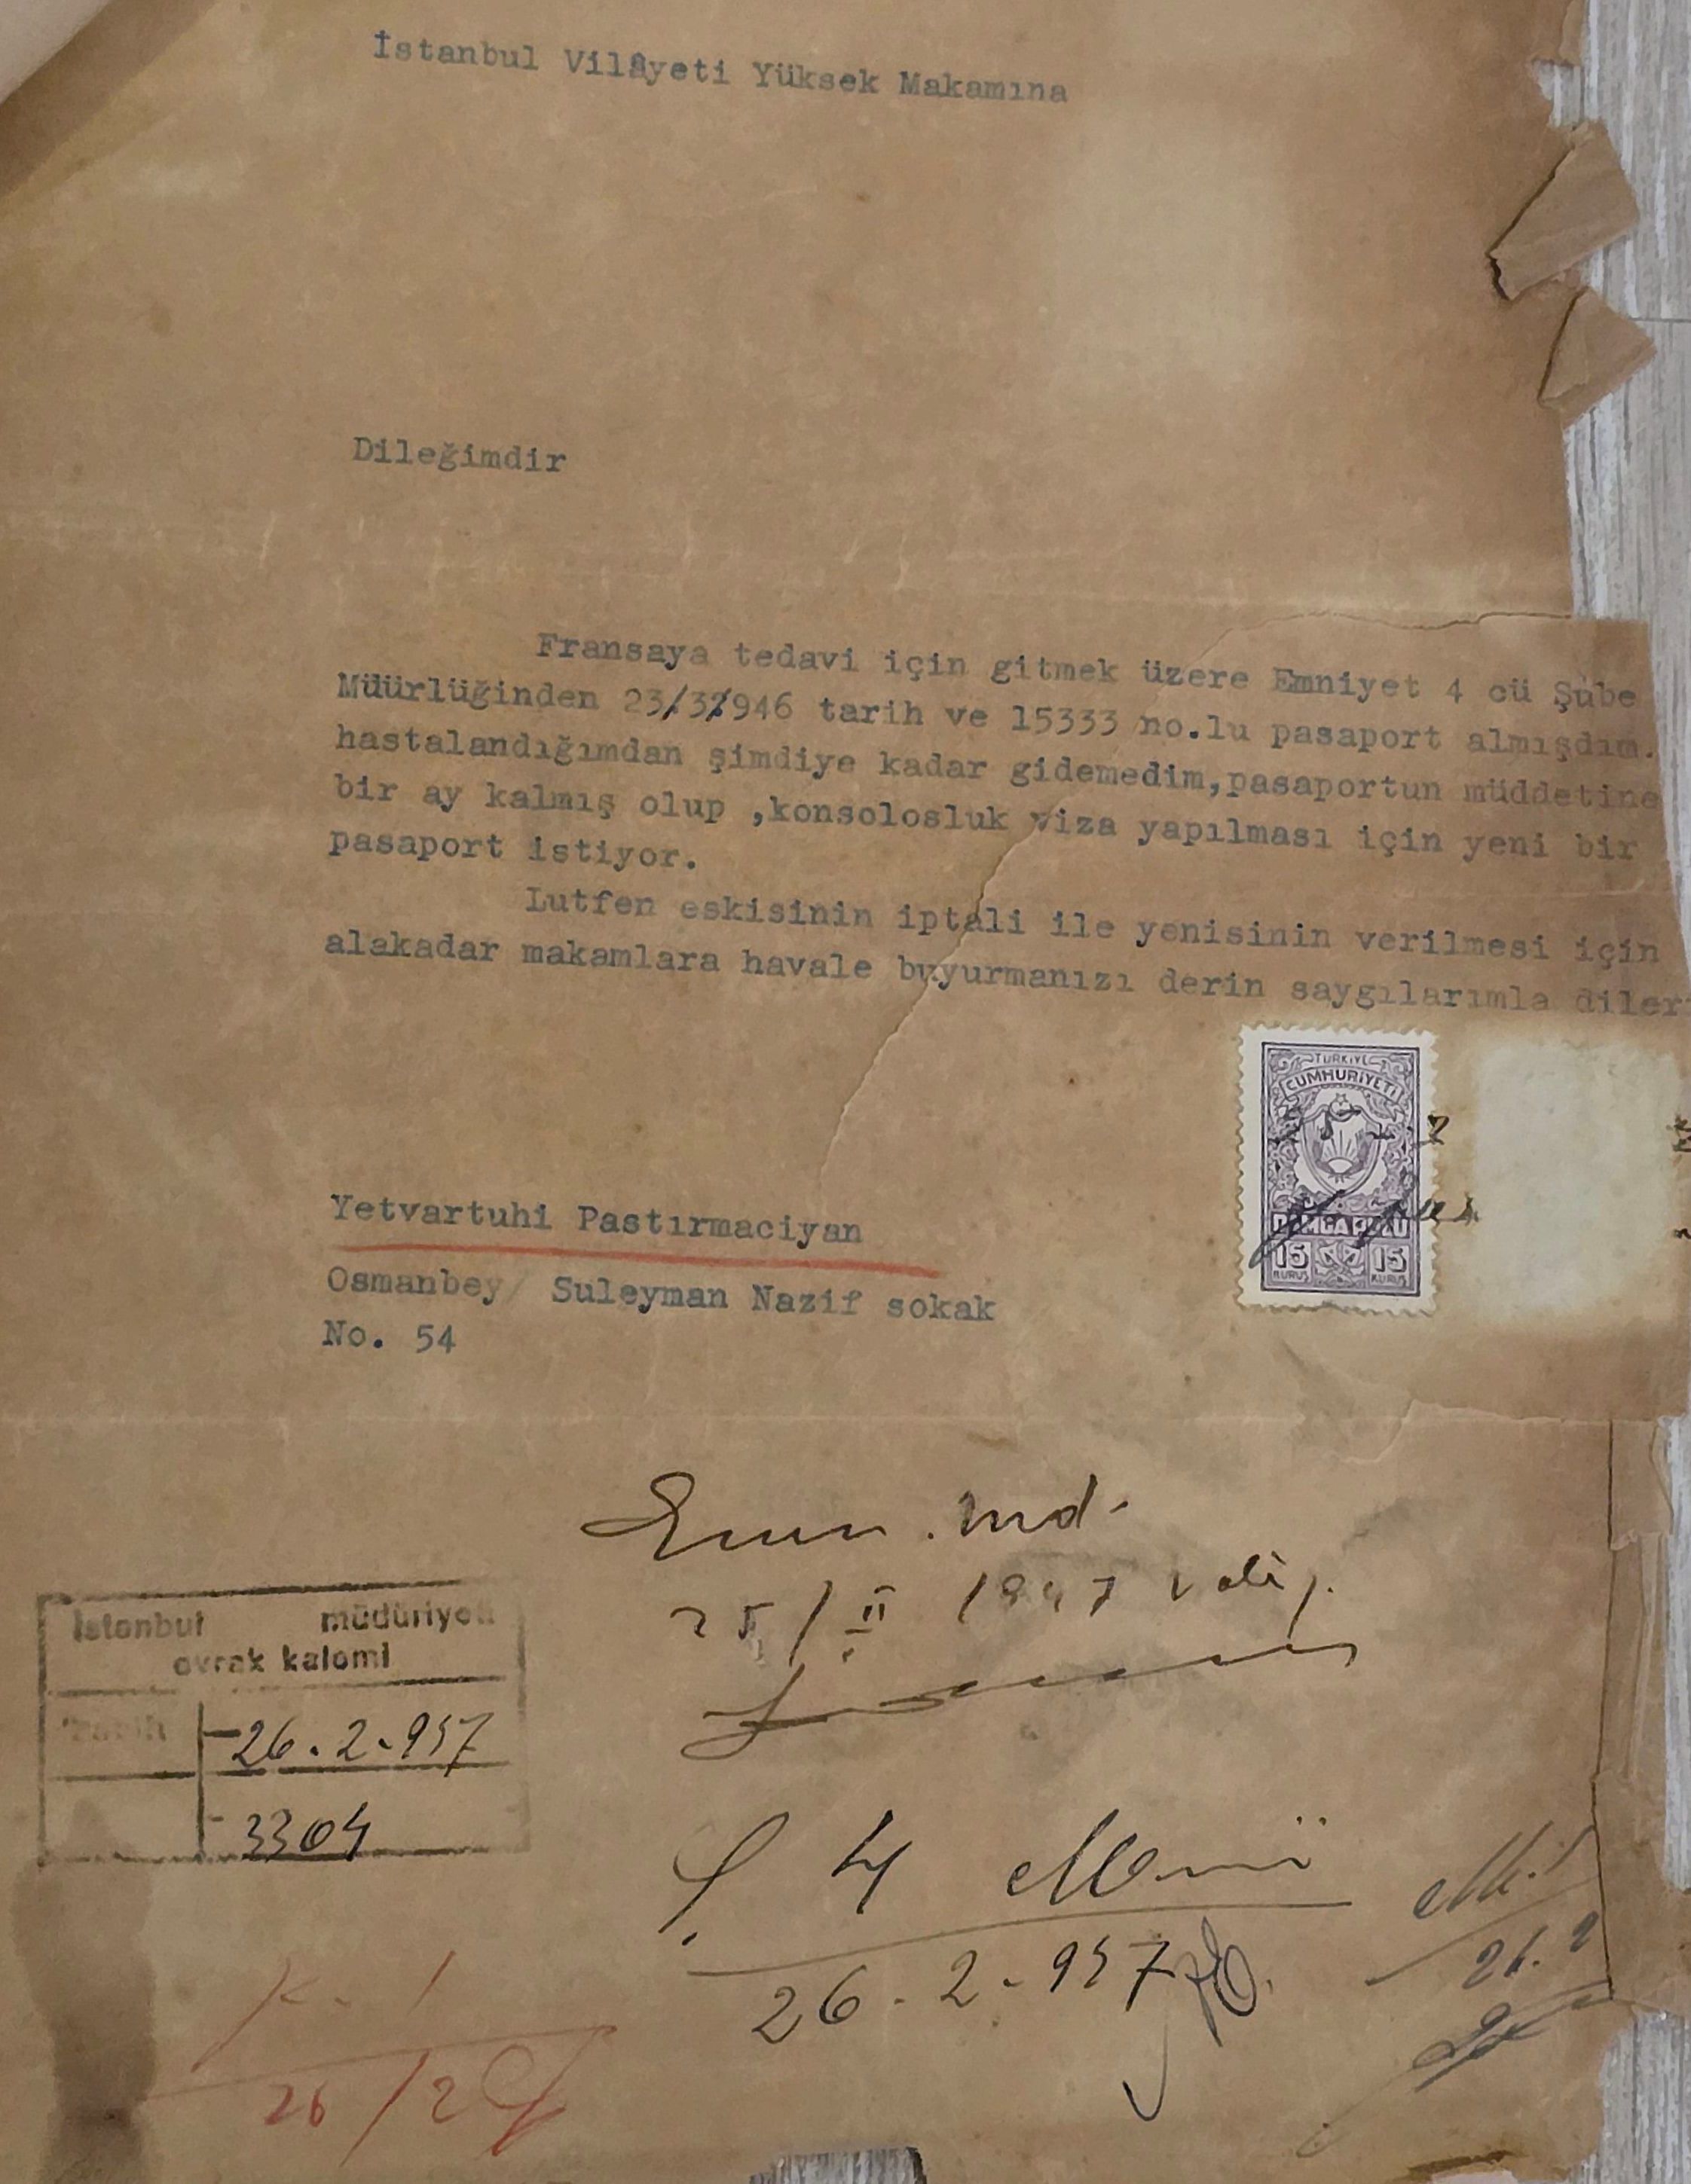 İstanbul Vilâyeti Yüksek Makamına
Dileğimdir
Fransaya tedavi için gitmek üzere Emniyet 4 cü Şube
Müürlüğinden 23/3/946 tarih ve 15333 no.lu pasaport almışdım.
hastalandığımdan şimdiye kadar gidemedim,pasaportun müddetine
bir ay kalmış olup ,konsolosluk viza yapılması için yeni bir
pasaport istiyor.
Lutfen eskisinin iptali ile yenisinin verilmesi için
alakadar makamlara havale buyurmanızı derin saygılarımla diler
TÜRKİYE
CUMHURİYETİ
DAMGA PULU
15 15
KURUŞ KURUŞ
Yetvartuhi Pastırmaciyan
Osmanbey/ Suleyman Nazif sokak
No. 54
Emn. Md.
25/II 1947 Vali y.
İstanbul müdüriyeti
evrak kalemi
Tarih 26.2.947
3304
Ş 4 
26.2.947
26.2
K. 1
26/2